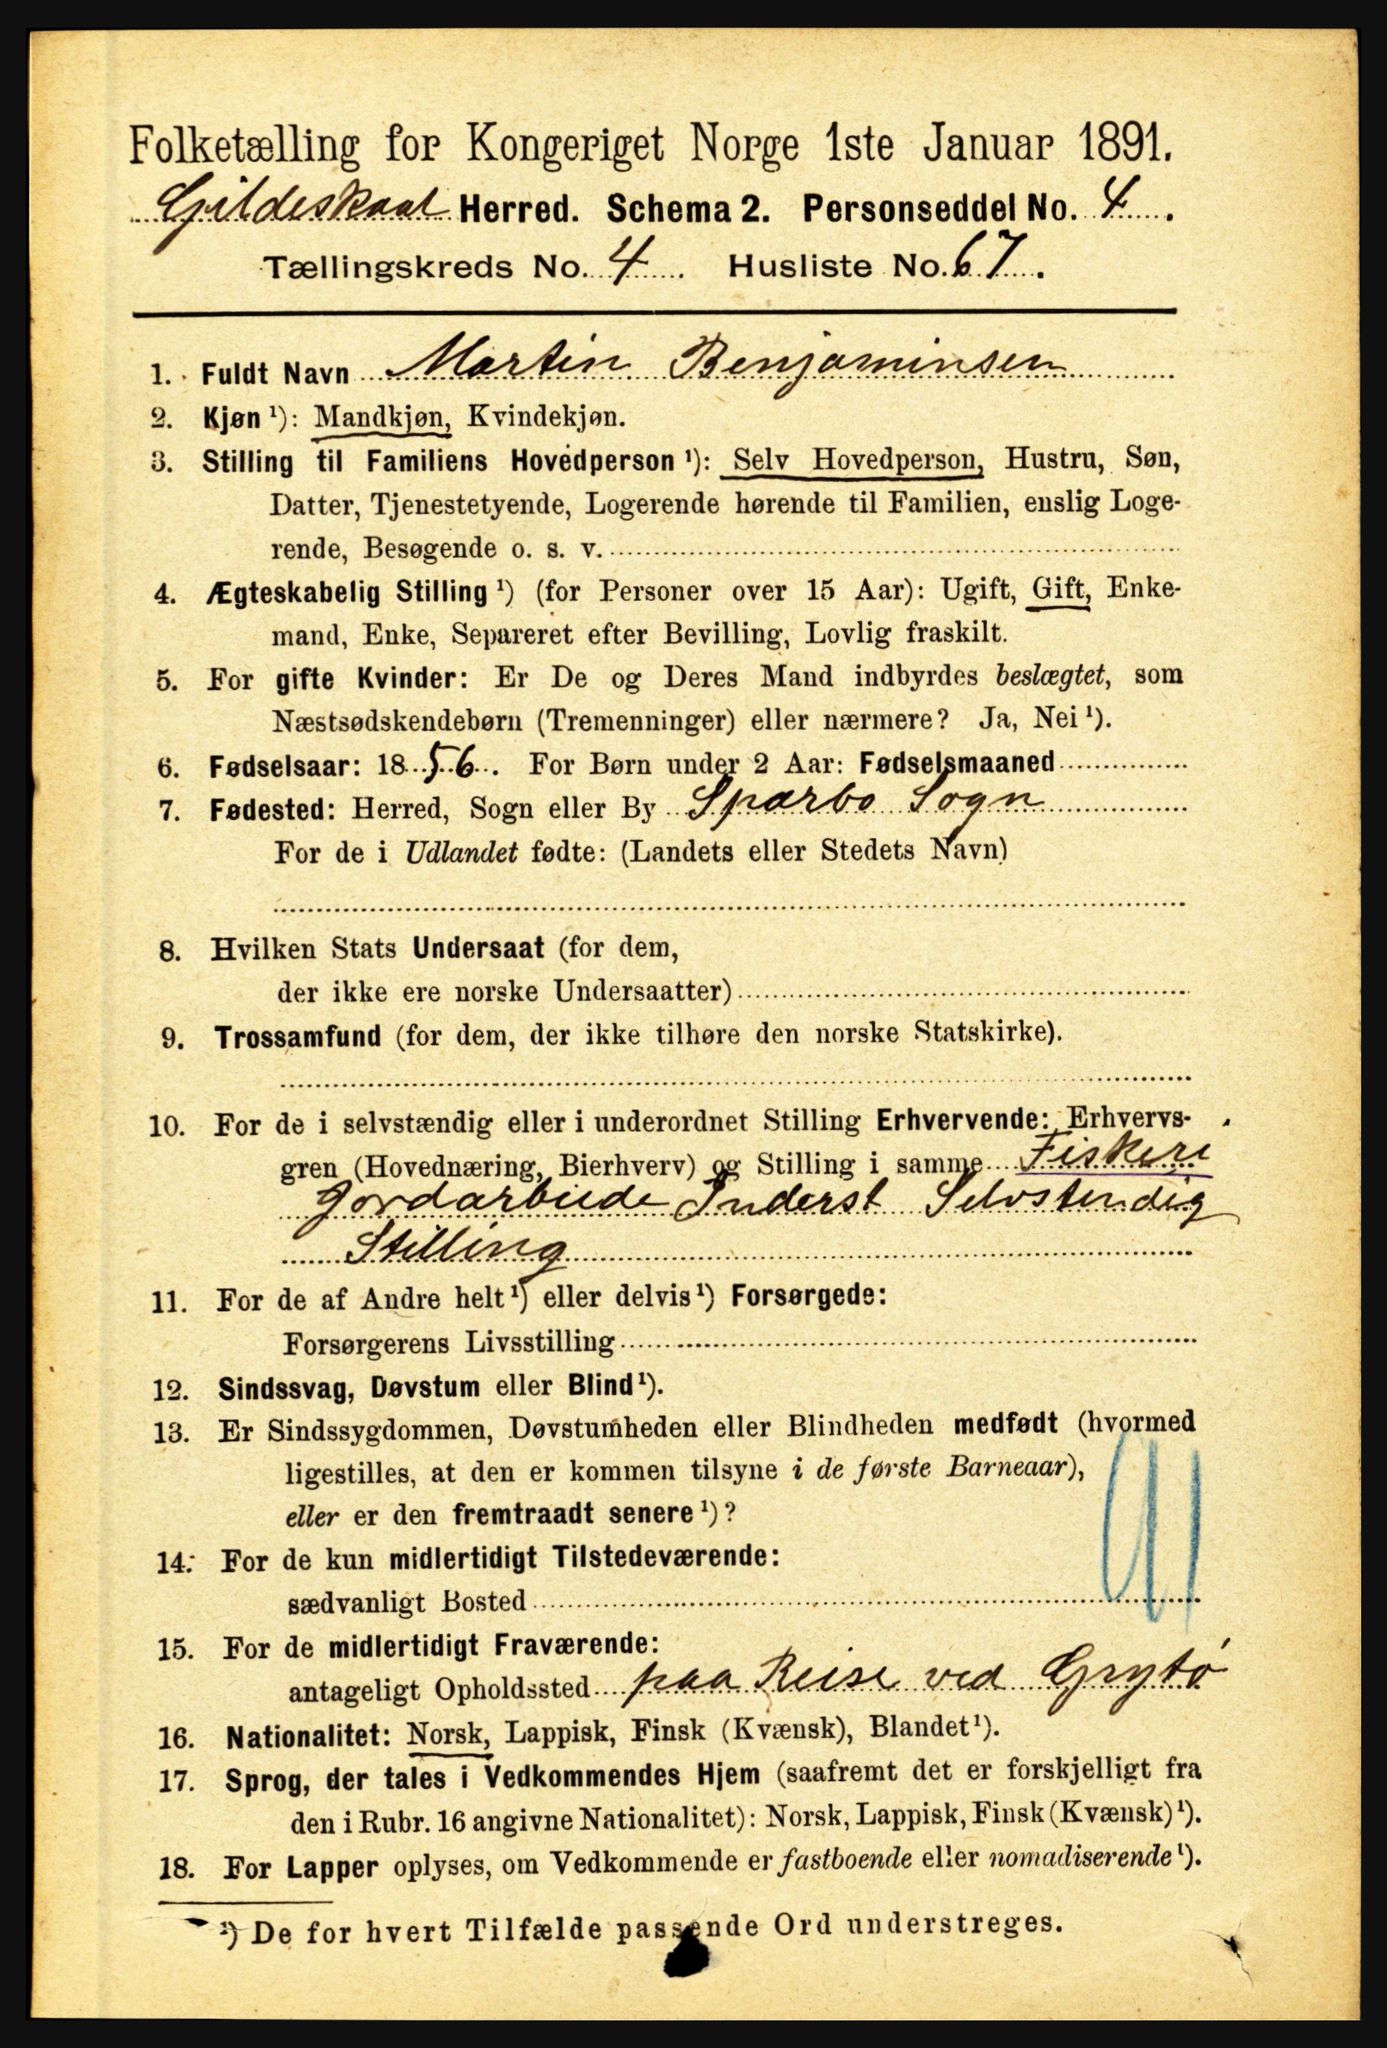 Folketælling for Kongeriget Norge 1ste Januar 1891.
Gildeskaal Herred. Schema 2. Personseddel No. 4.
Tællingskreds No. 4. Husliste No. 67.
1. Fuldt Navn Martin Benjaminsen
2. Kjøn ¹): Mandkjøn, Kvindekjøn.
3. Stilling til Familiens Hovedperson ¹): Selv Hovedperson, Hustru, Søn,
Datter, Tjenestetyende, Logerende hørende til Familien, enslig Loge-
rende, Besøgende o. s. v.
4. Ægteskabelig Stilling ¹) (for Personer over 15 Aar): Ugift, Gift, Enke-
mand, Enke, Separeret efter Bevilling, Lovlig fraskilt.
5. For gifte Kvinder: Er De og Deres Mand indbyrdes beslægtet, som
Næstsødskendebørn (Tremenninger) eller nærmere? Ja, Nei ¹).
6. Fødselsaar: 1856. For Børn under 2 Aar: Fødselsmaaned
7. Fødested: Herred, Sogn eller By Sparbo Sogn
For de i Udlandet fødte: (Landets eller Stedets Navn)
8. Hvilken Stats Undersaat (for dem,
der ikke ere norske Undersaatter)
9. Trossamfund (for dem, der ikke tilhøre den norske Statskirke).
10. For de i selvstændig eller i underordnet Stilling Erhvervende: Erhvervs-
gren (Hovednæring, Bierhverv) og Stilling i samme Fiskeri
Jordarbeide Inderst Selvstendig
Stilling
11. For de af Andre helt ¹) eller delvis ¹) Forsørgede:
Forsørgerens Livsstilling
12. Sindssvag, Døvstum eller Blind ¹).
13. Er Sindssygdommen, Døvstumheden eller Blindheden medfødt (hvormed
ligestilles, at den er kommen tilsyne i de første Barneaar),
eller er den fremtraadt senere ¹)?
14. For de kun midlertidigt Tilstedeværende:
sædvanligt Bosted
15. For de midlertidigt Fraværende:
antageligt Opholdssted paa Reise ved Grytø
16. Nationalitet: Norsk, Lappisk, Finsk (Kvænsk), Blandet ¹).
17. Sprog, der tales i Vedkommendes Hjem (saafremt det er forskjelligt fra
den i Rubr. 16 angivne Nationalitet): Norsk, Lappisk, Finsk (Kvænsk) ¹).
18. For Lapper oplyses, om Vedkommende er fastboende eller nomadiserende ¹).
¹) De for hvert Tilfælde passende Ord understreges.